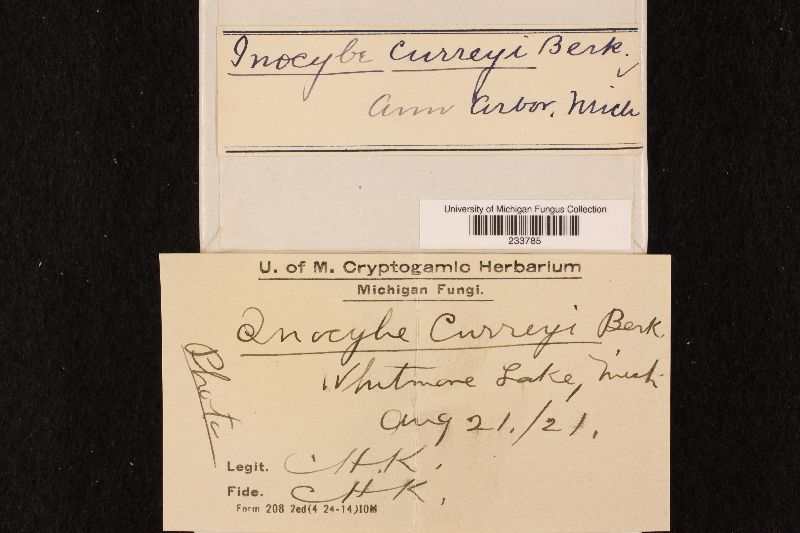 Inocybe Curreyi Berk.
Ann Arbor, Mich
University of Michigan Fungus Collection
233785
U. of M. Cryptogamic Herbarium
Michigan Fungi.
Inocybe Curreyi Berk.
Whitmore Lake, Mich.
Photo
Aug 21./21.
Legit. C.H.K.
Fide. CHK.
Form 208 2ed(4 24-14)10M